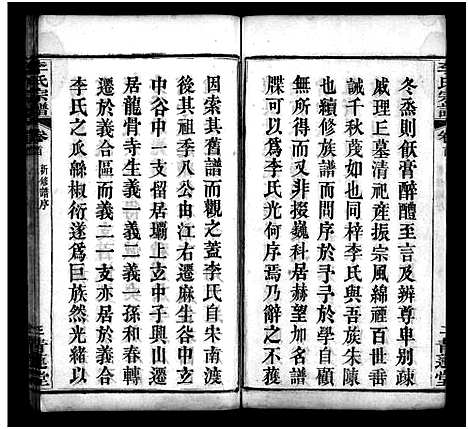 冬烝則飫膏醉醴至吾及辨尊卑別疎
戚理丘墓清祀產振宗風綿禋百世
誠千秋茂如也同梓李氏與吾族朱陳
也續修族譜而問序於予予於學自顧
無所得而又非掇巍科居赫望加名簡
牒可以無爲李氏光何序焉乃辭之不獲
因索其舊譜而觀之蓋李氏自宋南渡
後其祖季八公由江右遷麻生谷中谷
中谷中一支留居壩上中子興山遷
居龍骨寺生義一義二義一孫和春轉
遷於義合區而義二一支亦居於義合
李氏之瓜緜椒衍遂爲巨族然光緒以
李氏宗譜
卷首
新修譜序